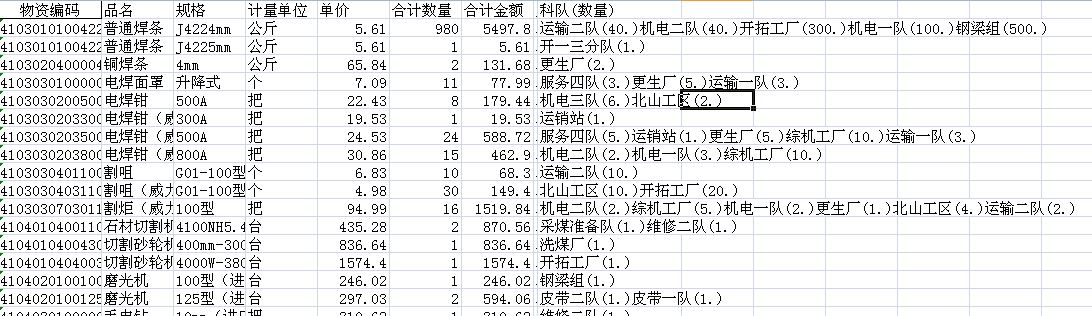 物资编码 品名 规格 计量单位 单价 合计数量 合计金额 科队(数量)
4103010100422 普通焊条 J4224mm 公斤 5.61 980 5497.8 运输二队(40.)机电二队(40.)开拓工厂(300.)机电一队(100.)钢梁组(500.)
4103010100422 普通焊条 J4225mm 公斤 5.61 1 5.61 开一三分队(1.)
4103020400004 铜焊条 4mm 公斤 65.84 2 131.68 更生厂(2.)
4103030100000 电焊面罩 升降式 个 7.09 11 77.99 服务四队(3.)更生厂(5.)运输一队(3.)
4103030200500 电焊钳 500A 把 22.43 8 179.44 机电三队(6.)北山工区(2.)
4103030203300 电焊钳（威 300A 把 19.53 1 19.53 运销站(1.)
4103030203500 电焊钳（威 500A 把 24.53 24 588.72 服务四队(5.)运销站(1.)更生厂(5.)综机工厂(10.)运输一队(3.)
4103030203800 电焊钳（威 800A 把 30.86 15 462.9 机电二队(2.)机电一队(3.)综机工厂(10.)
4103030401100 割咀 G01-100型 个 6.83 10 68.3 运输二队(10.)
4103030403110 割咀（威力 G01-100型 个 4.98 30 149.4 北山工区(10.)开拓工厂(20.)
4103030703011 割炬（威力 100型 把 94.99 16 1519.84 机电二队(2.)综机工厂(5.)机电一队(2.)更生厂(1.)北山工区(4.)运输二队(2.)
4104010400110 石材切割机 4100NH5.4 台 435.28 2 870.56 采煤准备队(1.)维修二队(1.)
4104010400430 切割砂轮机 400mm-300 台 836.64 1 836.64 洗煤厂(1.)
4104010404003 切割砂轮机 4000W-380 台 1574.4 1 1574.4 开拓工厂(1.)
4104020100100 磨光机 100型（进 台 246.02 1 246.02 钢梁组(1.)
4104020100125 磨光机 125型（进 台 297.03 2 594.06 皮带二队(1.)皮带一队(1.)